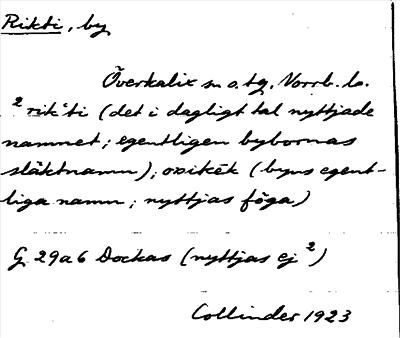 Rikti, by
Överkalix sn o. tg, Norrb. la.
² rik`ti (det i dagligt tal nyttjade
namnet; egentligen bybornas
släktnamn); osikēk (byns egent-
liga namn; nyttjas föga)
G 29a6 Dockas (nyttjas ej ²)
Collinder 1923